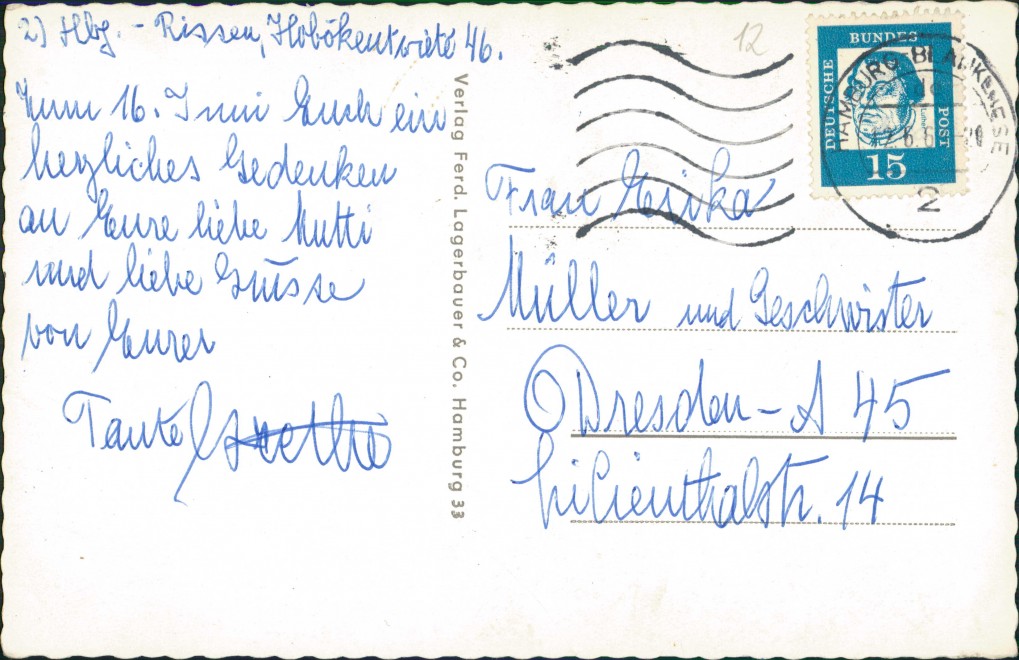 2) Hbg. - Rissen, Hobökentwiete 46.
Zum 16. Juni Euch ein
herzliches Gedenken
an Eure liebe Mutti
und liebe Grüsse
von Eurer
Tante Grethe
Verlag Ferd. Lagerbauer & Co. Hamburg 33
12
DEUTSCHE BUNDES POST
Luther
15
HAMBURG-BLANKENESE
2
Frau Erika
Müller und Geschwister
Dresden-A 45
Lilienthalstr. 14